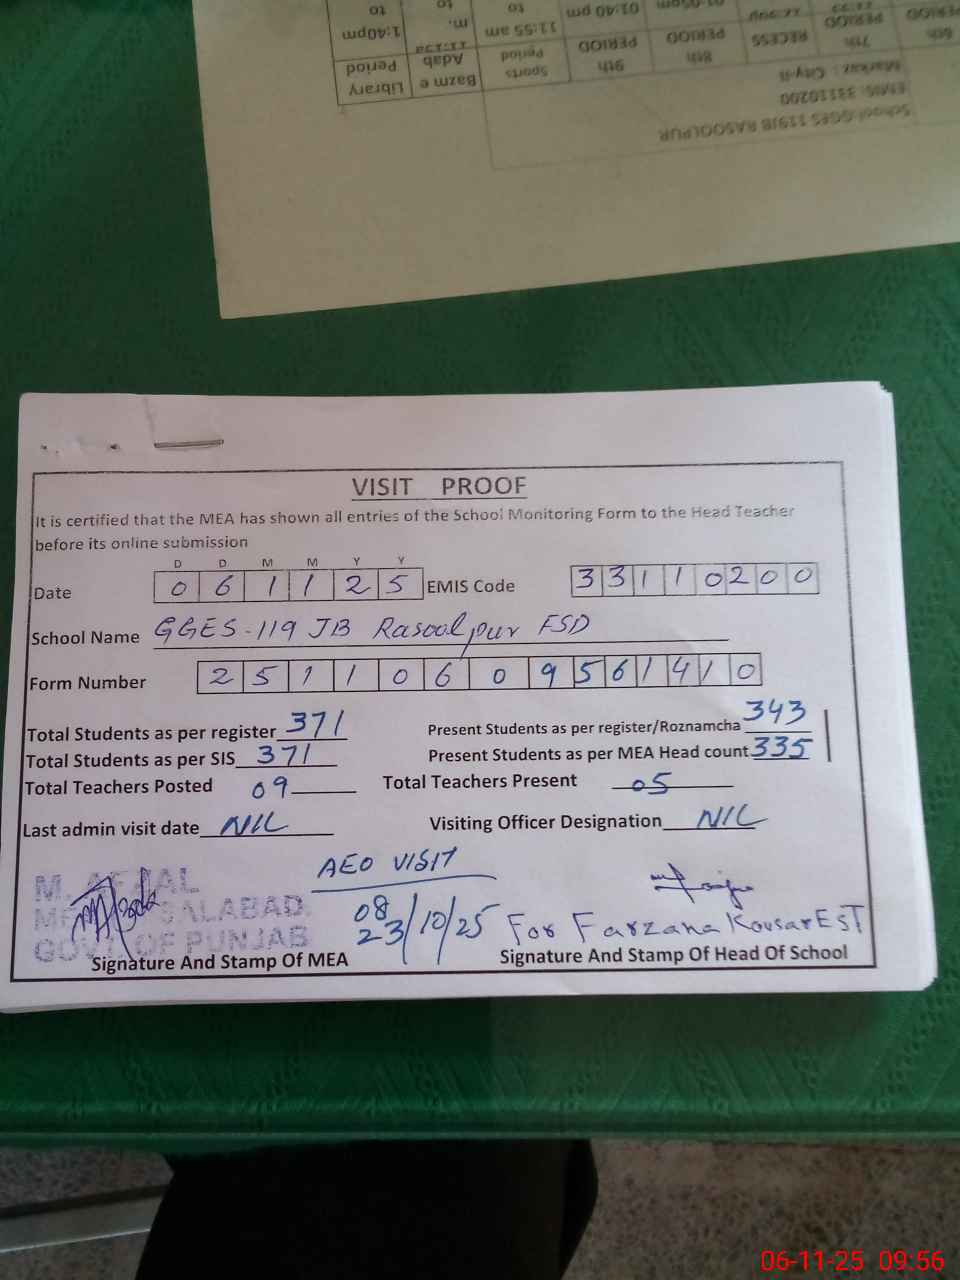 Library Period
Bazm e Adab
Sports Period
9th PERIOD
8th PERIOD
RECESS
7th PERIOD
6th PERIOD
1:40pm to
11:55 am to
01:40 pm
School:GGES 119JB RASOOLPUR
EMIS: 33110200
Markaz : City-II
VISIT PROOF
It is certified that the MEA has shown all entries of the School Monitoring Form to the Head Teacher
before its online submission
D D M M Y Y
Date 0 6 1 1 2 5 EMIS Code 3 3 1 1 0 2 0 0
School Name GGES-119 JB Rasoolpur FSD
Form Number 2 5 1 1 0 6 0 9 5 6 1 4 1 0
Total Students as per register 371 Present Students as per register/Roznamcha 343
Total Students as per SIS 371 Present Students as per MEA Head count 335
Total Teachers Posted 09 Total Teachers Present 05
Last admin visit date NIL Visiting Officer Designation NIL
AEO VISIT
M. AFZAL
FAISALABAD.
GOVT. OF PUNJAB
08
23/10/25
For Farzana Kousar EST
Signature And Stamp Of MEA Signature And Stamp Of Head Of School
06-11-25 09:56